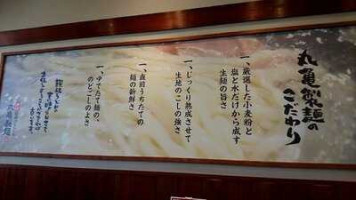 丸亀製麺の
こだわり
一、厳選した小麦粉と
塩と水だけから成す
生麺の旨さ
一、じっくり熟成させて
生麺のこしの強さ
一、直前うちたての
麺の新鮮さ
一、ゆでたて麺の、
のどごしのよさ